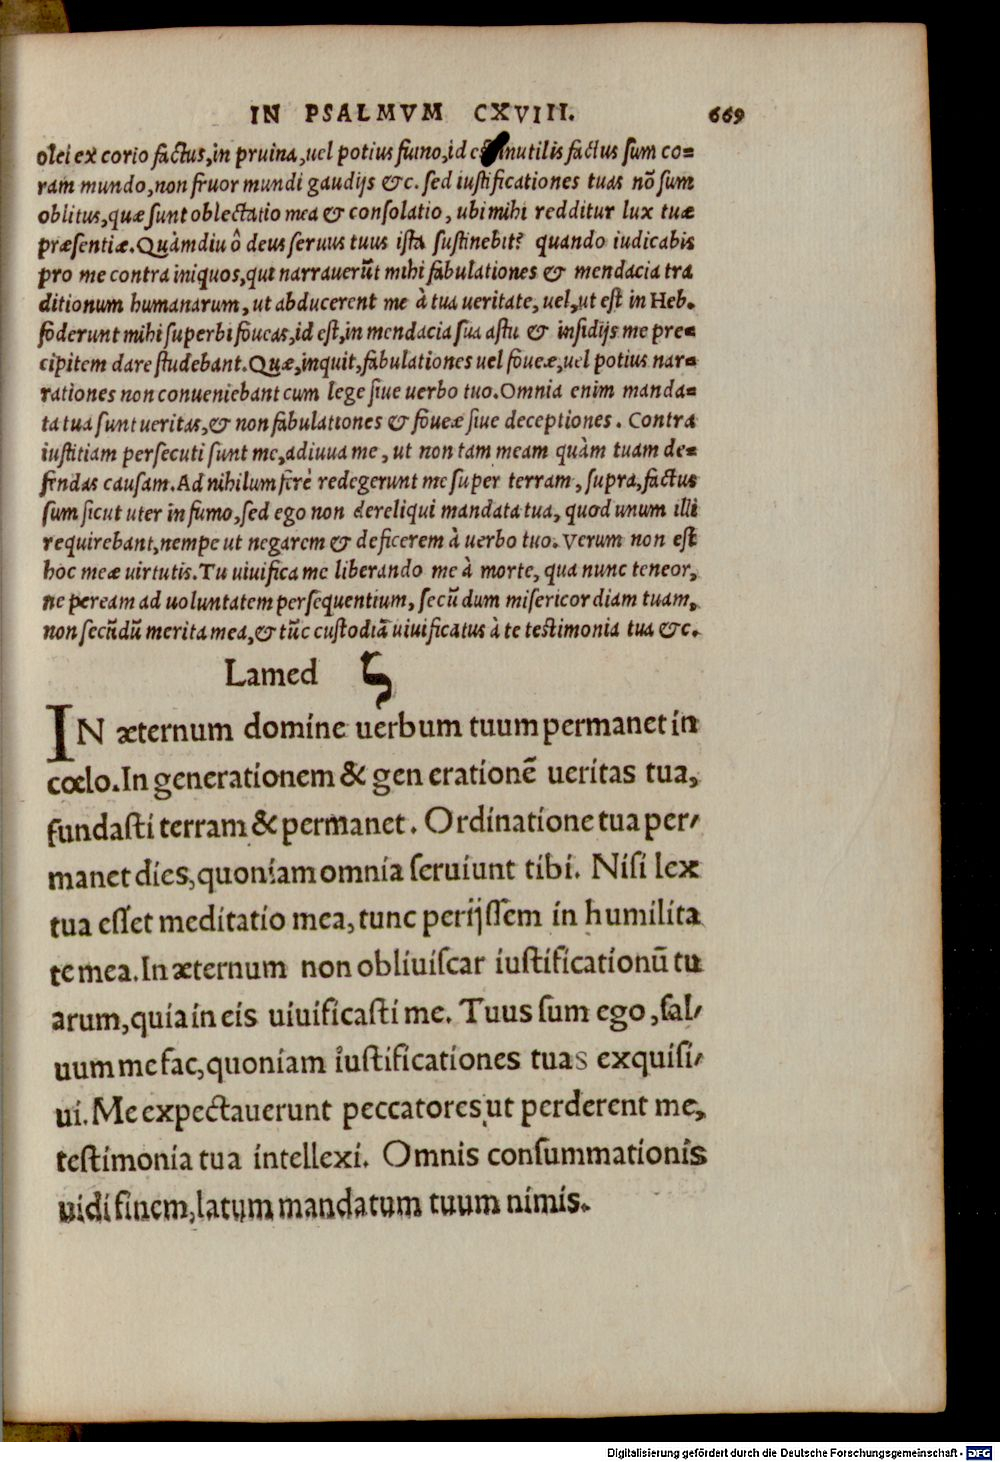 IN PSALMVM CXVIII. 669
olei ex corio factus, in pruina, uel potius fumo, id est inutilis factus sum co=
ram mundo, non fruor mundi gaudijs &c. sed iustificationes tuas nõ sum
oblitus, quæ sunt oblectatio mea & consolatio, ubi mihi redditur lux tuæ
præsentiæ. Quàmdiu ô deus seruus tuus ista sustinebit? quando iudicabis
pro me contra iniquos, qui narrauerũt mihi fabulationes & mendacia tra
ditionum humanarum, ut abducerent me à tua ueritate, uel, ut est in Heb.
foderunt mihi superbi foueas, id est, in mendacia sua astu & insidijs me pre=
cipitem dare studebant. Quæ, inquit, fabulationes uel foueæ, uel potius nar=
rationes non conueniebant cum lege siue uerbo tuo. Omnia enim manda=
ta tua sunt ueritas, & non fabulationes & foueæ siue deceptiones. Contra
iustitiam persecuti sunt me, adiuua me, ut non tam meam quàm tuam de=
fendas causam. Ad nihilum ferè redegerunt me super terram, supra, factus
sum sicut uter in fumo, sed ego non dereliqui mandata tua, quod unum illi
requirebant, nempe ut negarem & deficerem à uerbo tuo. Verum non est
hoc meæ uirtutis. Tu uiuifica me liberando me à morte, qua nunc teneor,
ne peream ad uoluntatem persequentium, secũdum misericordiam tuam,
non secũdũ merita mea, & tũc custodiã uiuificatus à te testimonia tua &c.
Lamed
IN æternum domine uerbum tuum permanet in
cœlo. In generationem & generationẽ ueritas tua,
fundasti terram & permanet. Ordinatione tua per/
manet dies, quoniam omnia seruiunt tibi. Nisi lex
tua esset meditatio mea, tunc perijssem in humilita
te mea. In æternum non obliuiscar iustificationũ tu
arum, quia in eis uiuificasti me. Tuus sum ego, sal/
uum me fac, quoniam iustificationes tuas exquisi/
ui. Me expectauerunt peccatores, ut perderent me,
testimonia tua intellexi. Omnis consummationis
uidi finem, latum mandatum tuum nimis.
Digitalisierung gefördert durch die Deutsche Forschungsgemeinschaft - DFG